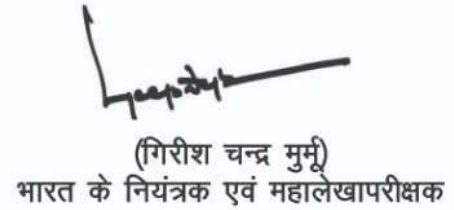 (गिरीश चन्द्र मुर्मू)
भारत के नियंत्रक एवं महालेखापरीक्षक